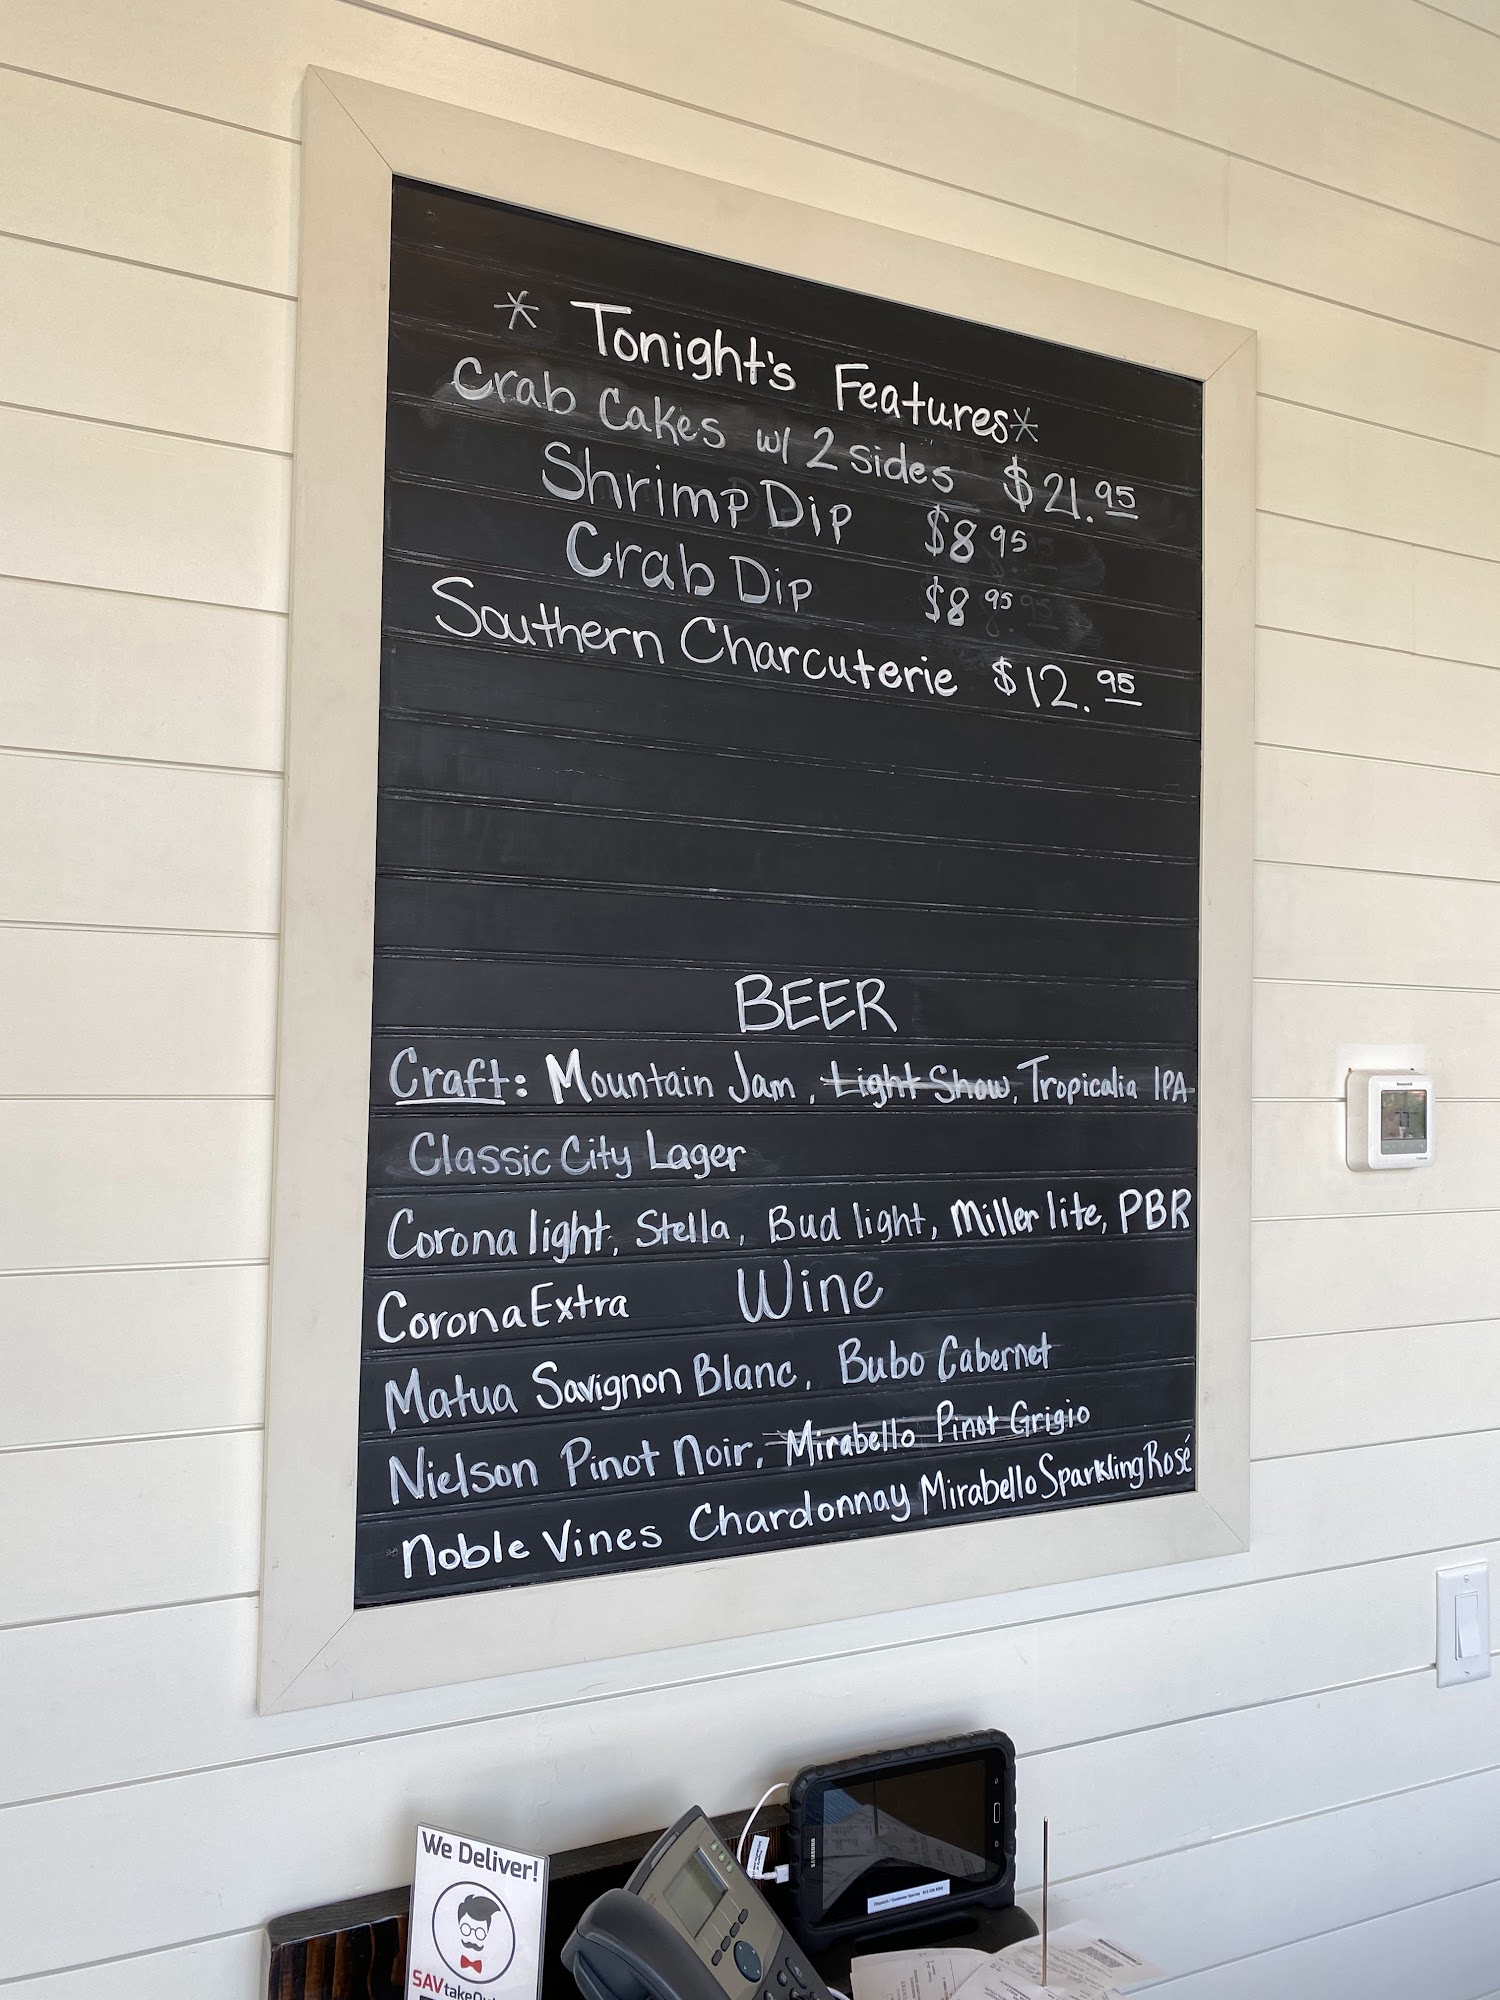 * Tonight's Features *
Crab Cakes w/ 2 sides $21.95
Shrimp Dip $8.95
Crab Dip $8.95
Southern Charcuterie $12.95
BEER
Craft: Mountain Jam, Light Show, Tropicalia IPA
Classic City Lager
Corona light, Stella, Bud light, Miller lite, PBR
Corona Extra
Wine
Matua Savignon Blanc, Bubo Cabernet
Nielson Pinot Noir, Mirabello Pinot Grigio
Noble Vines Chardonnay Mirabello Sparkling Rosé
Honeywell
SAMSUNG
We Deliver!
SAVtakeOu